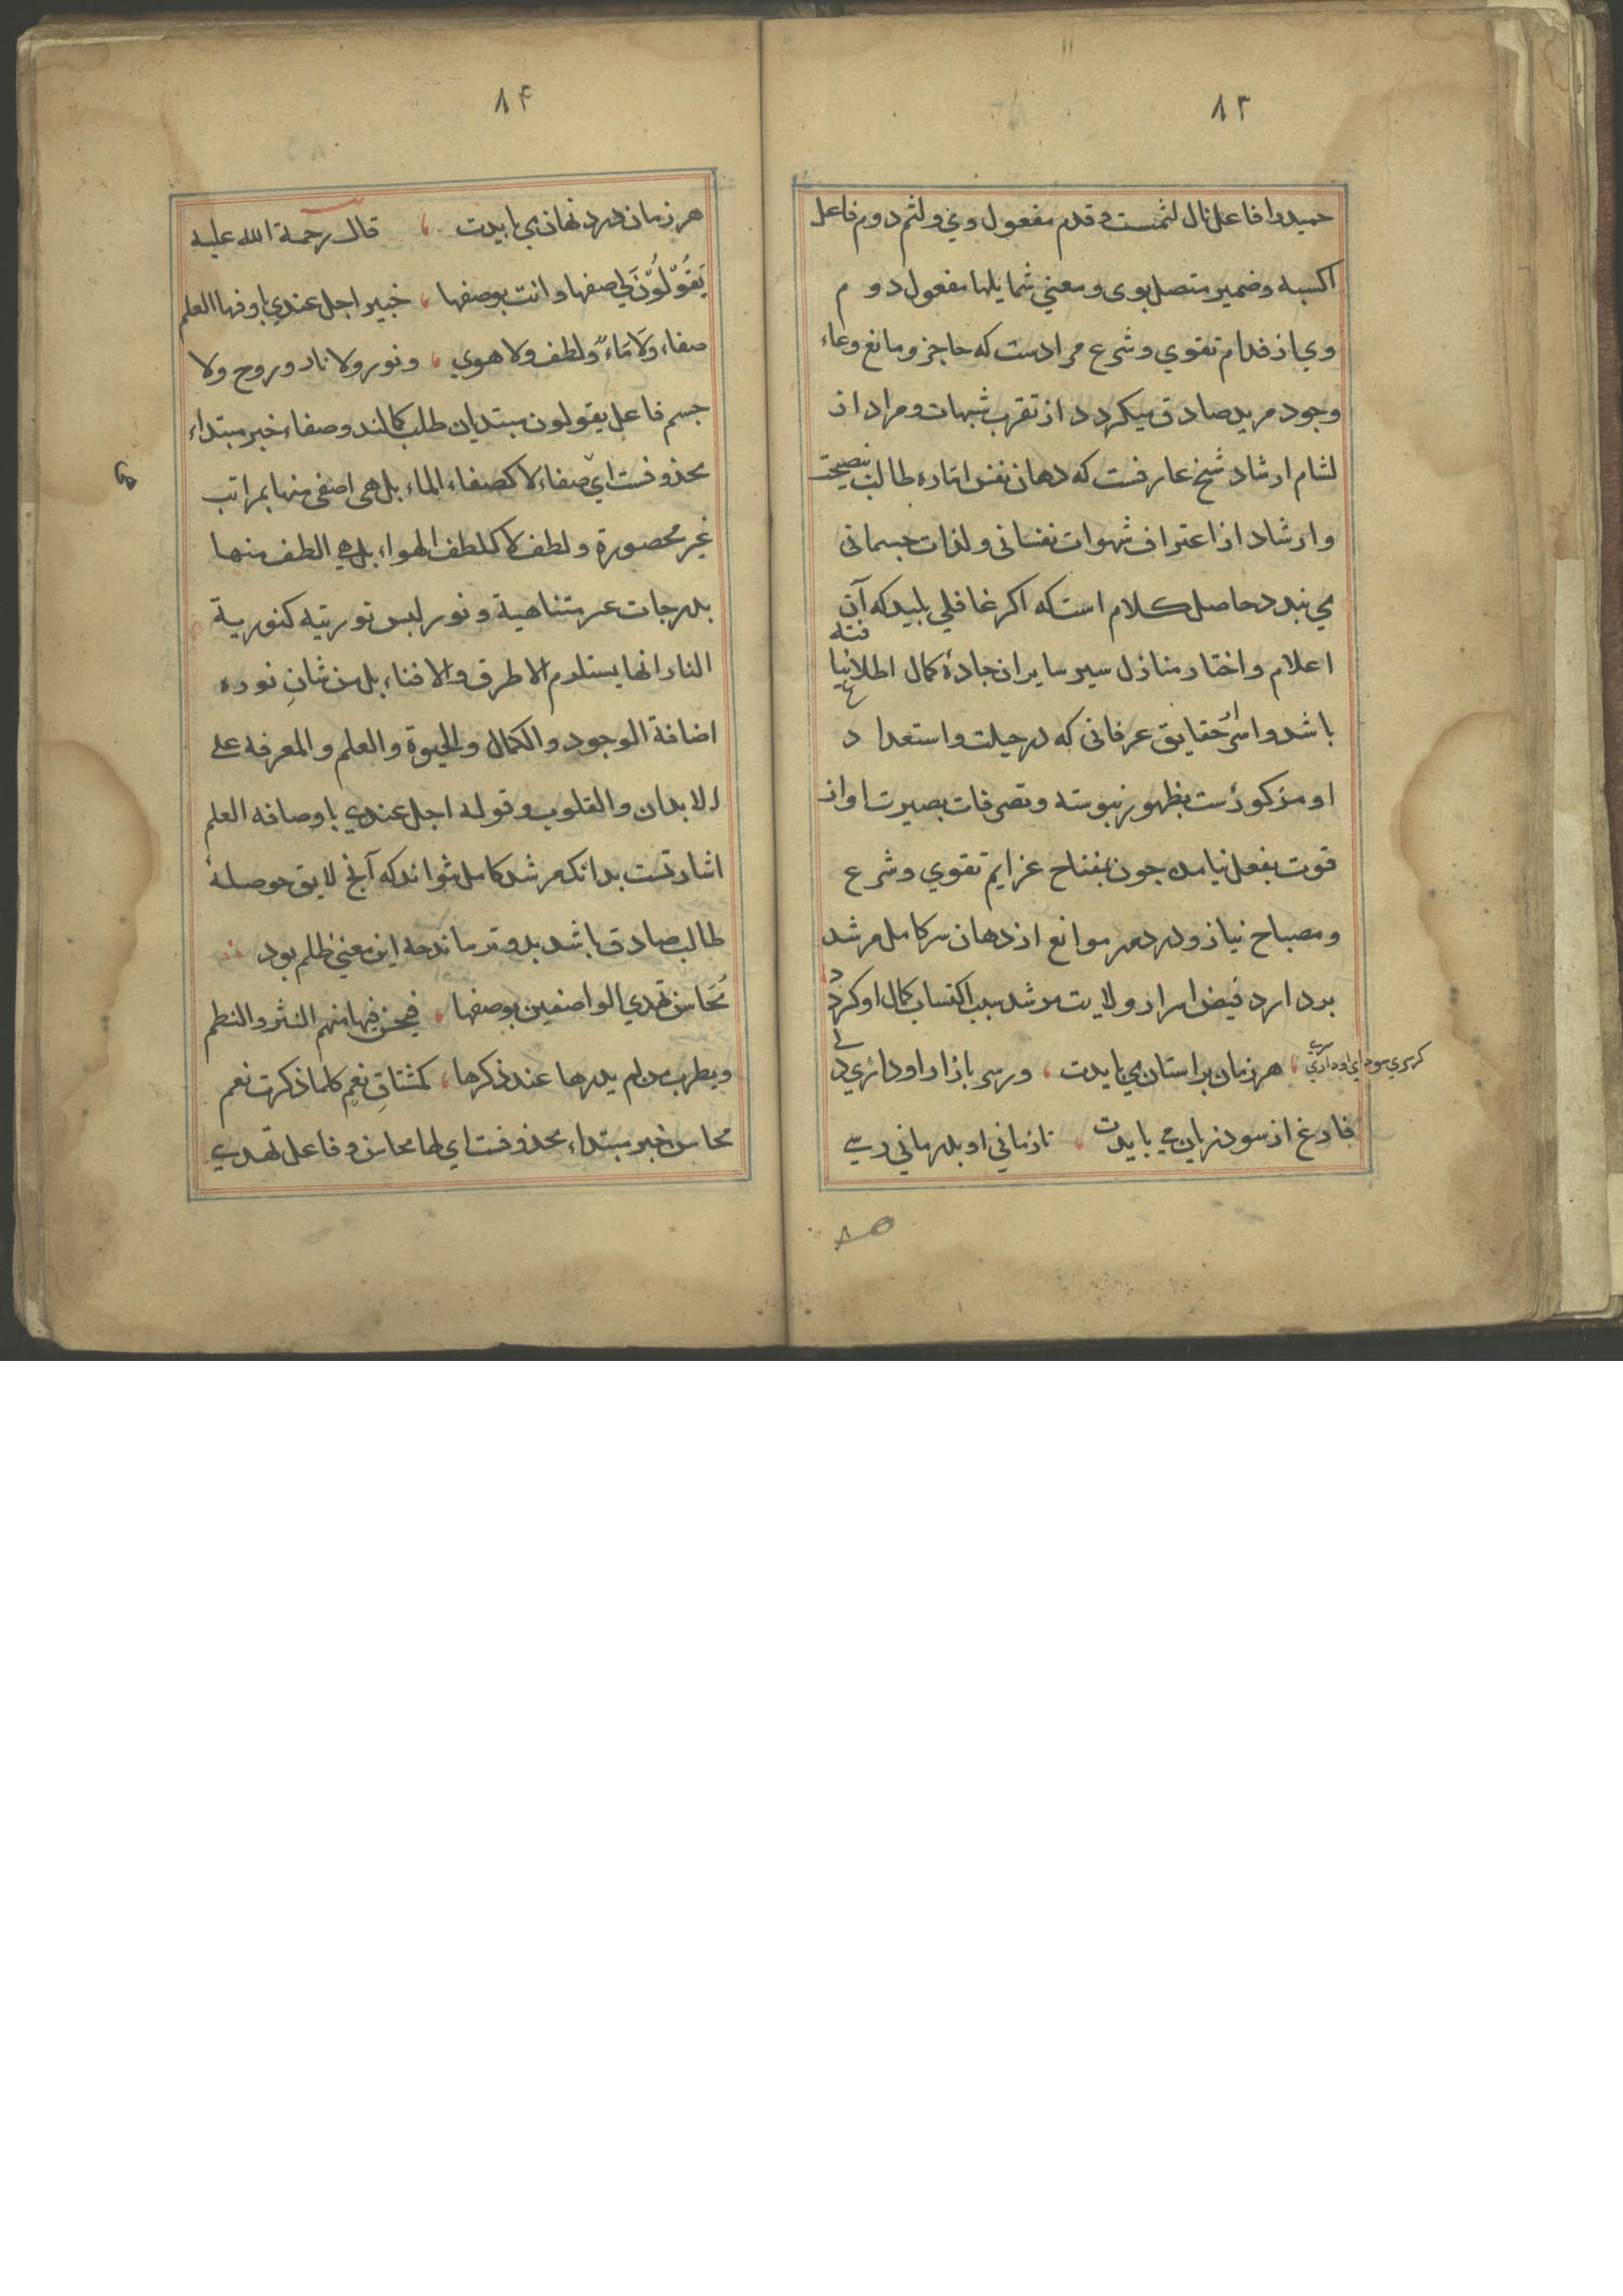 ۸۳
حمیدوا فاعل نال لثمست و قدم مفعول وي و لثم دوم فاعل
اکسبه و ضمیر متصل بوی و معني شمایلها مفعول دو م
وي از فدام تقوي و شرع مرادست که حاجز و مانع وعاء
وجود مرید صادق میکردد از تقرب شبهات و مراد از
لثام ارشاد شیخ عارفست که دهان نفس اماره طالب بنصیحت
و ارشاد از اعتراف شهوات نفسانی و لذات جسمانی
مي بندد حاصل کلام است که اکر غافلي بلید که آن
فته
اعلام و اختار منازل سیر سایران جادۀ کمال اطلا نیا
ع
باشد و اسرار حقایق عرفانی که در جبلت و استعدا د
او مذکورست بظهور نپیوسته و تصرفات بصیرت او از
قوت بفعل نیامده جون بمفتاح عزایم تقوي و شرع
و مصباح نیاز و درد مهر موانع از دهان سر کامل مرشد
بردارد فیض اسرار ولایت مرشد سبب اکتساب کمال او کردد
کر سري سوداي او داري هر زمان بر استان مي بایدت ور سر بازار او داري د لے
فارغ از سود زیان مي بایدت تا زماني او بدرماني رسے
۸۵
۸۴
هر زمان درد نهان مي بایدت قال رحمة الله علیه
يَقُولُونَ لي صفها وانت بوصفها خبیر اجل عندي باوصافها العلم
صفاء ولا مَاءٌ ولطف ولا هوي ونور ولا نار وروح ولا
جسم فاعل یقولون مبتدیان طلب کمالند و صفاء خبر مبتداء
محذوفست اي صفاء لا کصفاء الماء بل هي اصفی منها بمراتب
غیر محصورة ولطف لا کلطف الهواء بل هي الطف منها
بدرجات غیر متناهیة ونور لیس نوریته کنوریة
النار انها یستلزم الاطرق والافناء بل من شانِ نوره
اضافة الوجود والکمال والحیوة والعلم والمعرفه علے
الابدان والقلوب و قوله اجل عندي باوصافه العلم
اشارتست بدانکه مرشد کامل بتواند که آنچ لایق حوصلۀ
طالب صادق باشد بدو رساند چه این معني ظلم بود
مُحَاسن تهدي الواصفین بوصفها فیحسن فیها منهم النثر والنظم
ویطرب من لم یدرها عند ذکرها کمشتاقِ نعم کلما ذکرت نعم
محاسن خبر مبتداء محذوفست اي لها محاسن و فاعل تهدي